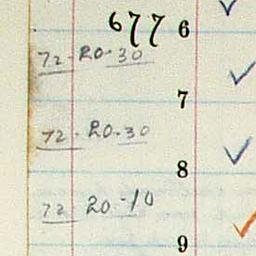 677 6
72-20-30
7
72-20-30
8
72 20-10
9